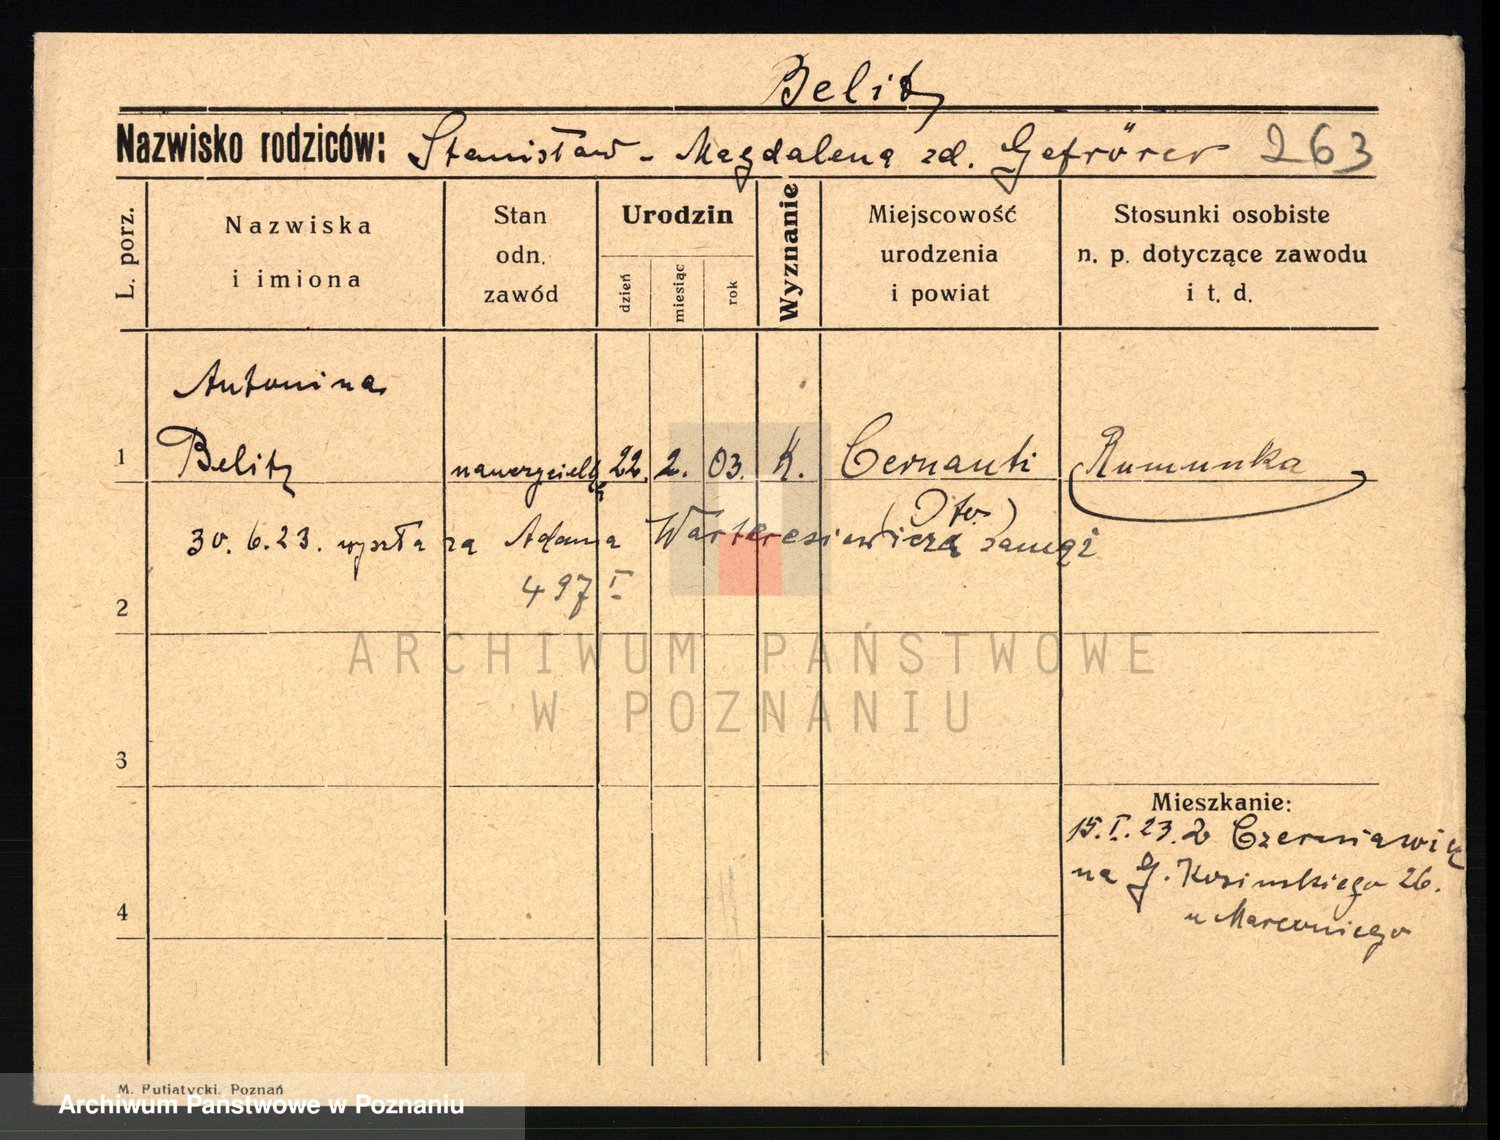 Belitz
Nazwisko rodziców: Stanisław - Magdalena zd. Gefrörer 263
L. porz.
Nazwiska
i imiona
Stan
odn.
zawód
Urodzin
dzień
miesiąc
rok
Wyznanie
Miejscowość
urodzenia
i powiat
Stosunki osobiste
n. p. dotyczące zawodu
i t. d.
Antonina
1 Belitz nauczycielka 22. 2. 03. K. Cernauti Rumunka
30. 6. 23. wyszła za Adama Warteresiewicza zamąż
2 497 I
ARCHIWUM PAŃSTWOWE
W POZNANIU
3
Mieszkanie:
15. I. 23. z Czerniawic
na G. Kosinskiego 26.
u Marconiego
4
M. Putiatycki, Poznań
Archiwum Państwowe w Poznaniu